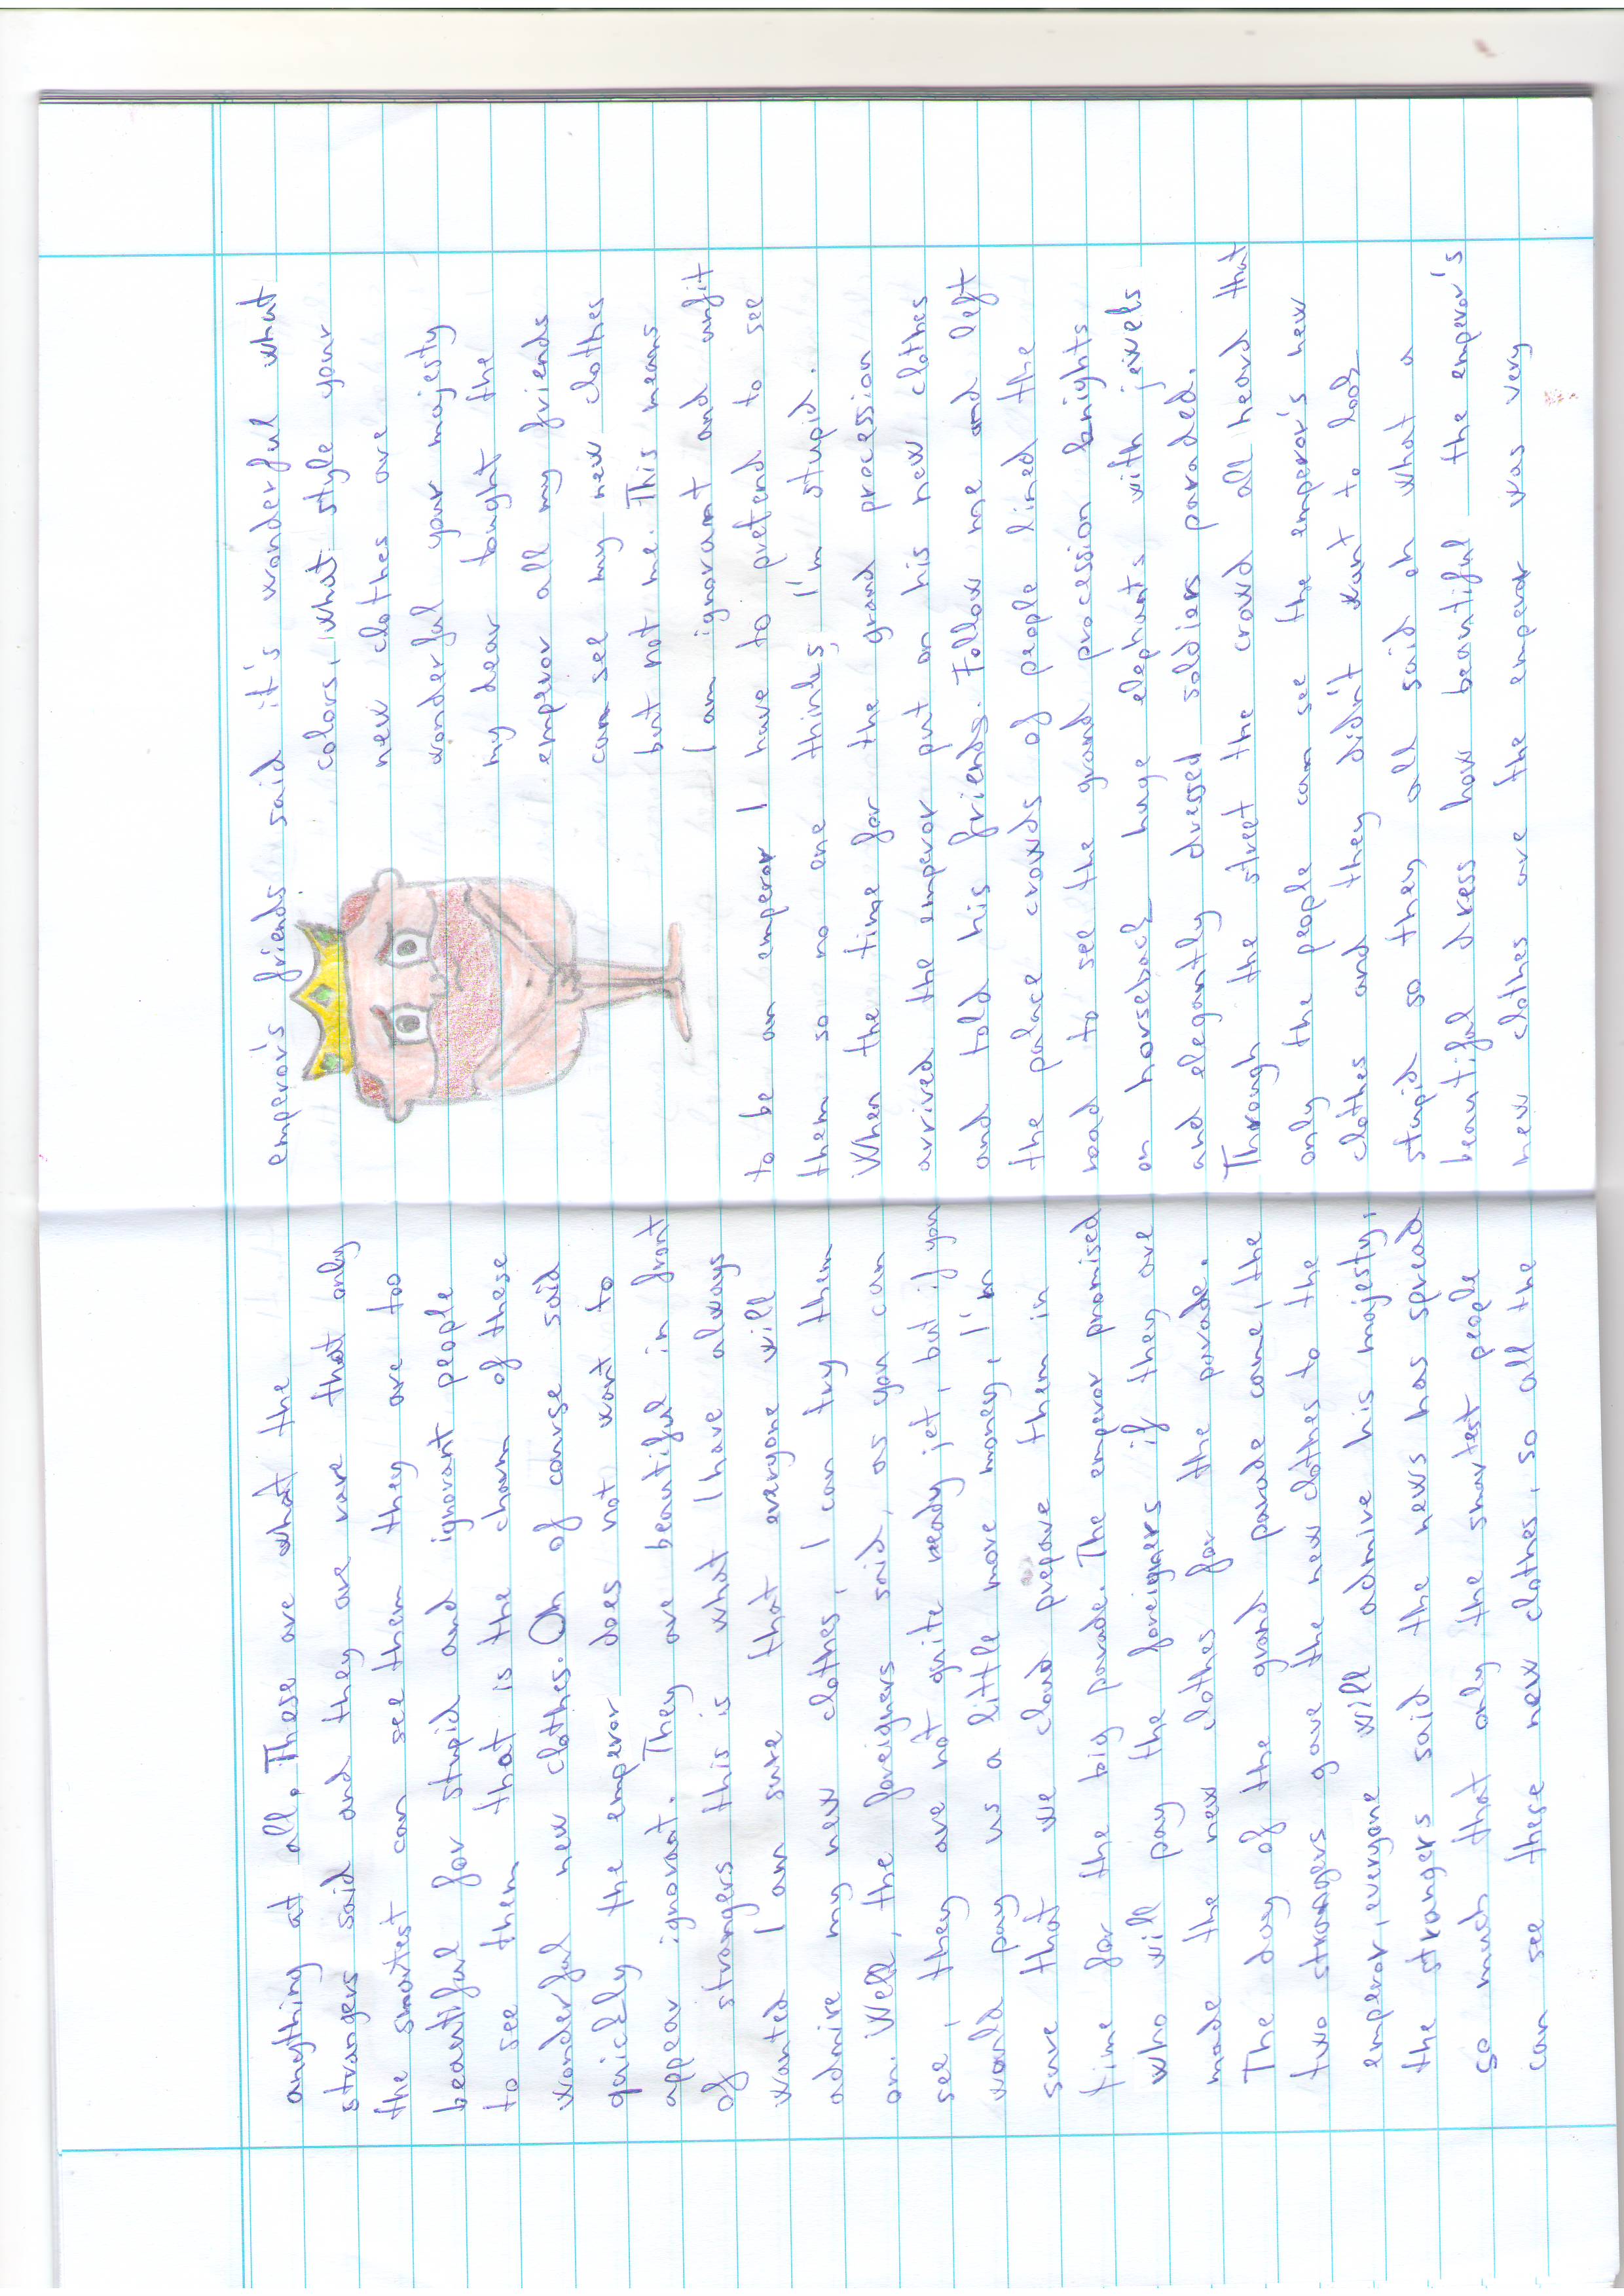 anything at all. These are what the
strangers said and they are rare that only
the smartest can see them they are too
beautiful for stupid and ignorant people
to see them that is the charm of these
wonderful new clothes. Oh of course said
quickly the emperor does not want to
appear ignorant. They are beautiful in front
of strangers this is what I have always
wanted I am sure that everyone will
admire my new clothes, I can try them
on. Well, the foreigners said, as you can
see, they are not quite ready jet, but if you
would pay us a little more money, I'm
sure that we cloud prepare them in
time for the big parade. The emperor promised
who will pay the foreigners if they are
made the new clothes for the parade.
The day of the grand parade came, the
two strangers gave the new clothes to the
emperor, everyone will admire his majesty,
the strangers said the news has spread
so much that only the smartest people
can see these new clothes, so all the
emperor's friends said it's wonderful what
colors, what style your
new clothes are
wonderful your majesty
my dear tought the
emperor all my friends
can see my new clothes
but not me. This means
I am ignorant and unfit
to be an emperor I have to pretend to see
them so no one thinks I'm stupid.
When the time for the grand procession
arrived the emperor put on his new clothes
and told his friends. Follow me and left
the palace crowds of people lined the
road to see the grand procession knights
on horseback huge elephants with jewels
and elegantly dressed soldiers paraded.
Through the street the crowd all heard that
only the people can see the emperor's new
clothes and they didn't want to look
stupid so they all said oh what a
beautiful dress how beautiful the emperor's
new clothes are the emperor was very